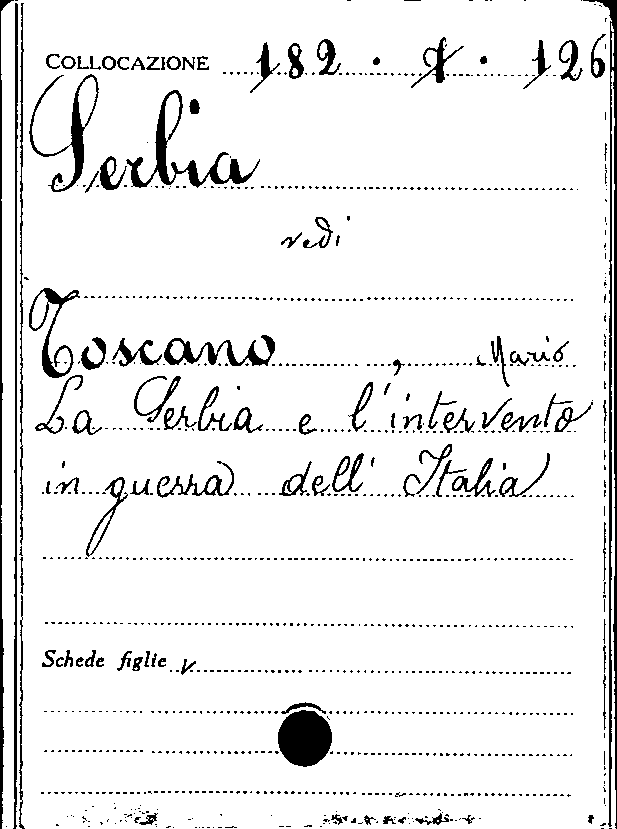 COLLOCAZIONE 182 . 1 . 126
Serbia
vedi
Toscano , Mario
La Serbia e l'intervento
in guerra dell' Italia
Schede figlie v